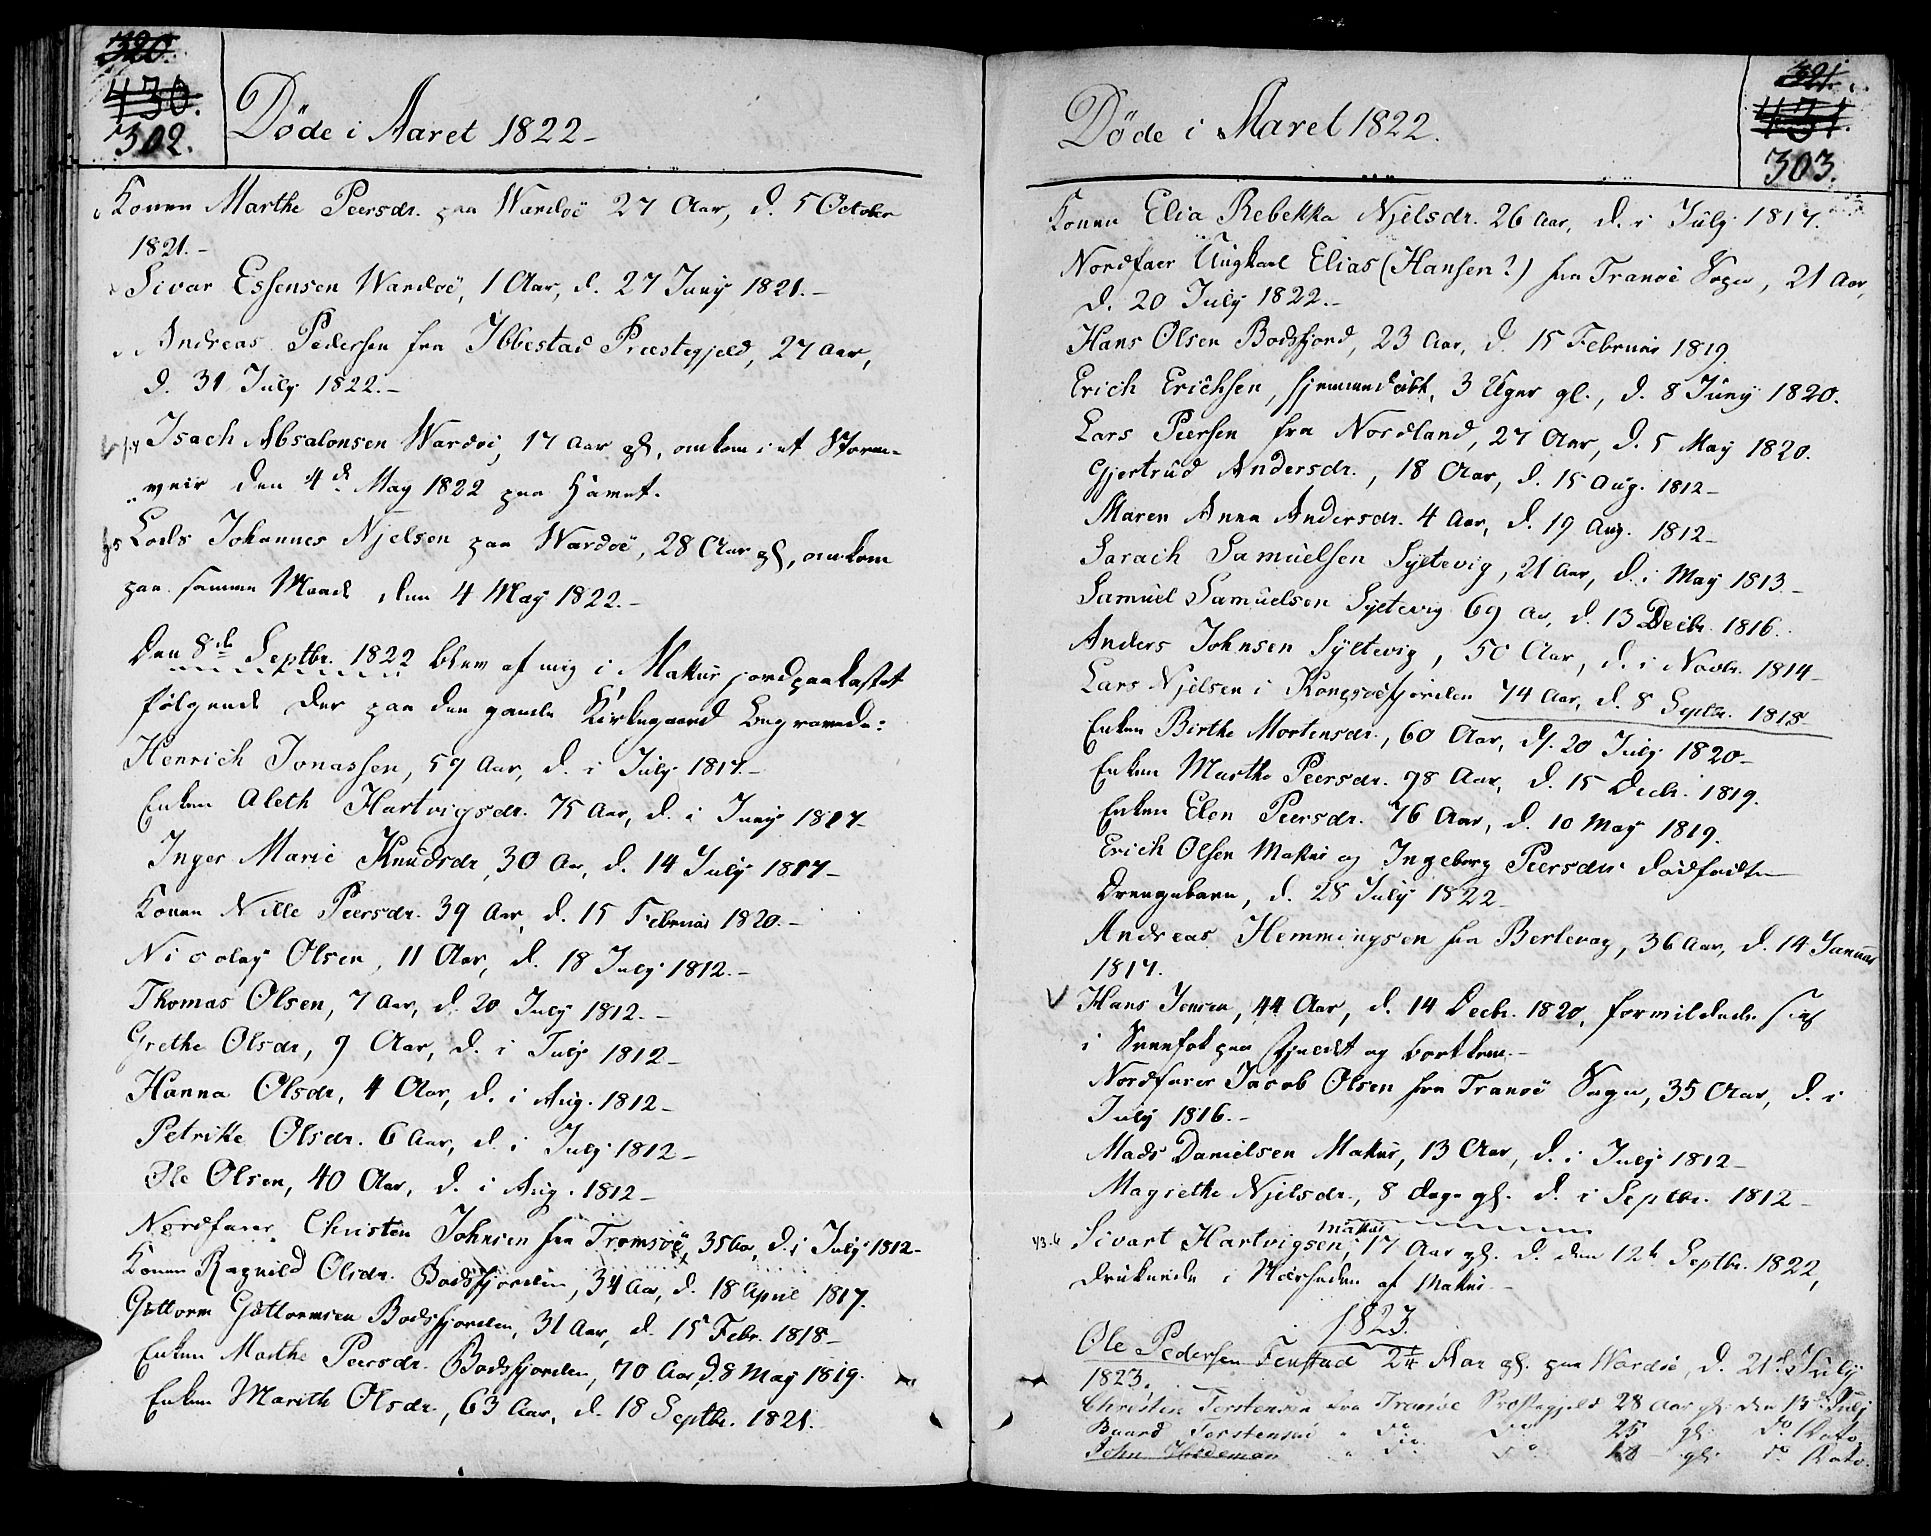 320.
430.
302.
Døde i Aaret 1822-
Konen Marthe Peersdr. paa Wardöe 27 Aar, d. 5 October
1821.-
Sivar Essensen Wardöe, 1 Aar, d. 27 Juny 1821.-
Andreas Pedersen fra Ibbestad Præstegjeld, 27 Aar,
d. 31 July 1822.-
Isach Absalonsen Wardöe, 17 Aar gl, omkom i et Storm-
veir den 4d May 1822 paa Havet.
Lods Johannes Njelsen paa Wardöe, 28 Aar gl, omkom
paa samme Maade, den 4 May 1822.-
Den 8de Septbr. 1822 blev af mig i Makur jordpaakastet
følgende der paa den gamle Kirkegaard begravede:
Henrich Jonassen, 59 Aar, d. i July 1817.-
Enken Aleth Hartvigsdr. 75 Aar, d. i Juny 1817-
Inger Marie Knudsdr, 30 Aar, d. 14 July 1817-
Konen Nille Peersdr. 39 Aar, d. 15 Februar 1820.-
Nicolay Olsen, 11 Aar, d. 18 July 1812.-
Thomas Olsen, 7 Aar, d. 20 July 1812.-
Grethe Olsdr, 9 Aar, d. i July 1812-
Hanna Olsdr, 4 Aar, d. i Aug. 1812-
Petrikke Olsdr. 6 Aar, d. i July 1812-
Ole Olsen, 40 Aar, d. i Aug. 1812-
Nordfarer Christen Johnsen fra Tromsöe, 35 Aar, d. i July 1812-
Konen Ragnild Olsdr. Baadsfjorden, 34 Aar, d. 18 April 1817.
Guttorm Guttormsen Baadsfjorden, 31 Aar, d. 15 Febr. 1818-
Enken Marthe Peersdr. Baadsfjorden, 70 Aar, d. 8 May 1819.
Enken Marith Olsdr., 63 Aar, d. 18 Septbr. 1821.
321.
431.
303.
Døde i Aaret 1822.
Konen Elia Rebekka Njelsdr. 26 Aar, d. i July 1817.
Nordfaer Ungkarl Elias (Hansen?) fra Tranöe Sogn, 21 Aar,
d. 20 July 1822.-
Hans Olsen Baadsfjord, 23 Aar, d. 15 Februar 1819.
Erich Erichsen, hjemmedøbt, 3 Uger gl., d. 8 Juny 1820.
Lars Peersen fra Nordland, 27 Aar, d. 5 May 1820.
Gjertrud Andersdr., 18 Aar, d. 15 Aug. 1812-
Maren Anna Andersdr. 4 Aar, d. 19 Aug. 1812-
Sarach Samuelsen Syltevig, 21 Aar, d. i May 1813-
Samuel Samuelsen Syltevig 69 Aar, d. 13 Decbr. 1816.
Anders Johnsen Syltevig, 50 Aar, d. i Novbr. 1814-
Lars Njelsen i Kongsöefjorden 74 Aar, d. 8 Septbr. 1818
Enken Birthe Mortensdr., 60 Aar, d. 20 July 1820-
Enken Marthe Peersdr. 78 Aar, d. 15 Decbr. 1819.
Enken Elen Peersdr. 76 Aar, d. 10 May 1819.
Erich Olsen Makur og Ingeborg Peersdrs dødfødte
Drengebarn, d. 28 July 1822-
Andreas Hemmingsen fra Berlevog, 36 Aar, d. 14 Januar
1817.
Hans Jensen, 44 Aar, d. 14 Decbr. 1820, forvildede sig
i Sneefok paa Fjeldet og bortkom.-
Nordfarer Jacob Olsen fra Tranöe Sogn, 35 Aar, d. i
July 1816.-
Mads Danielsen Makur, 13 Aar, d. i July 1812-
Magrethe Njelsdr., 8 dage gl. d. i Septbr. 1812-
Sivart Hartvigsen, Makur, 17 Aar gl. d. den 12te Septbr. 1822,
druknede i Nærheden af Makur.-
1823.
Ole Pedersen Fenstad 24 Aar gl. paa Wardöe, d. 21de July
1823.
Christen Torstensen fra Tranöe Præstegjeld 28 Aar gl. den 13de July
Baard Torstensen " do do 25 gl. do Dato
John Holdeman " do do gl. do Dato.